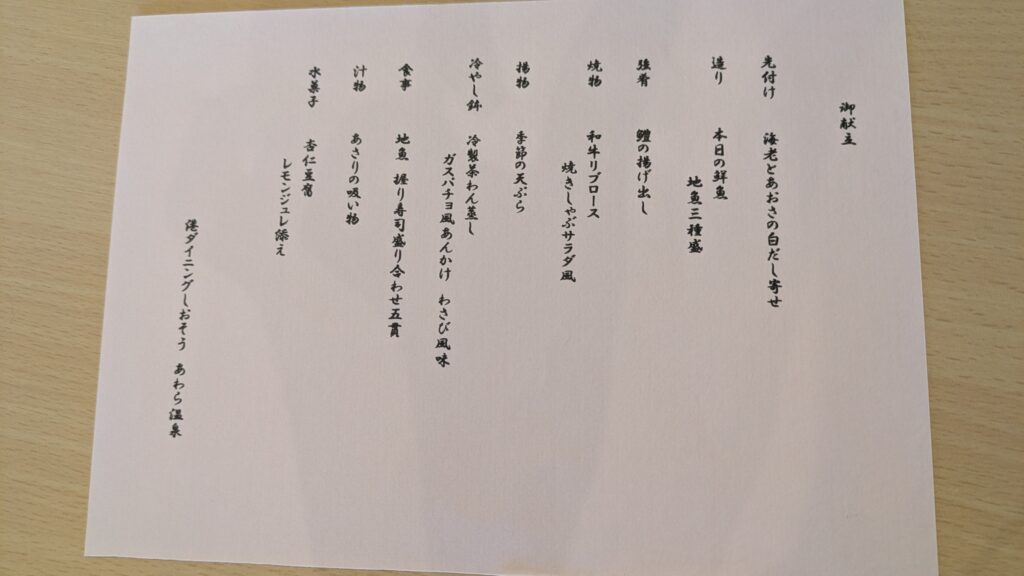 御献立
先付け 海老とあおさの白だし寄せ
造り 本日の鮮魚
地魚三種盛
強肴 鱧の揚げ出し
焼物 和牛リブロース
焼きしゃぶサラダ風
揚物 季節の天ぷら
冷やし鉢 冷製茶わん蒸し
ガスパチョ風あんかけ わさび風味
食事 地魚 握り寿司盛り合わせ五貫
汁物 あさりの吸い物
水菓子 杏仁豆腐
レモンジュレ添え
港ダイニングしおそう あわら温泉